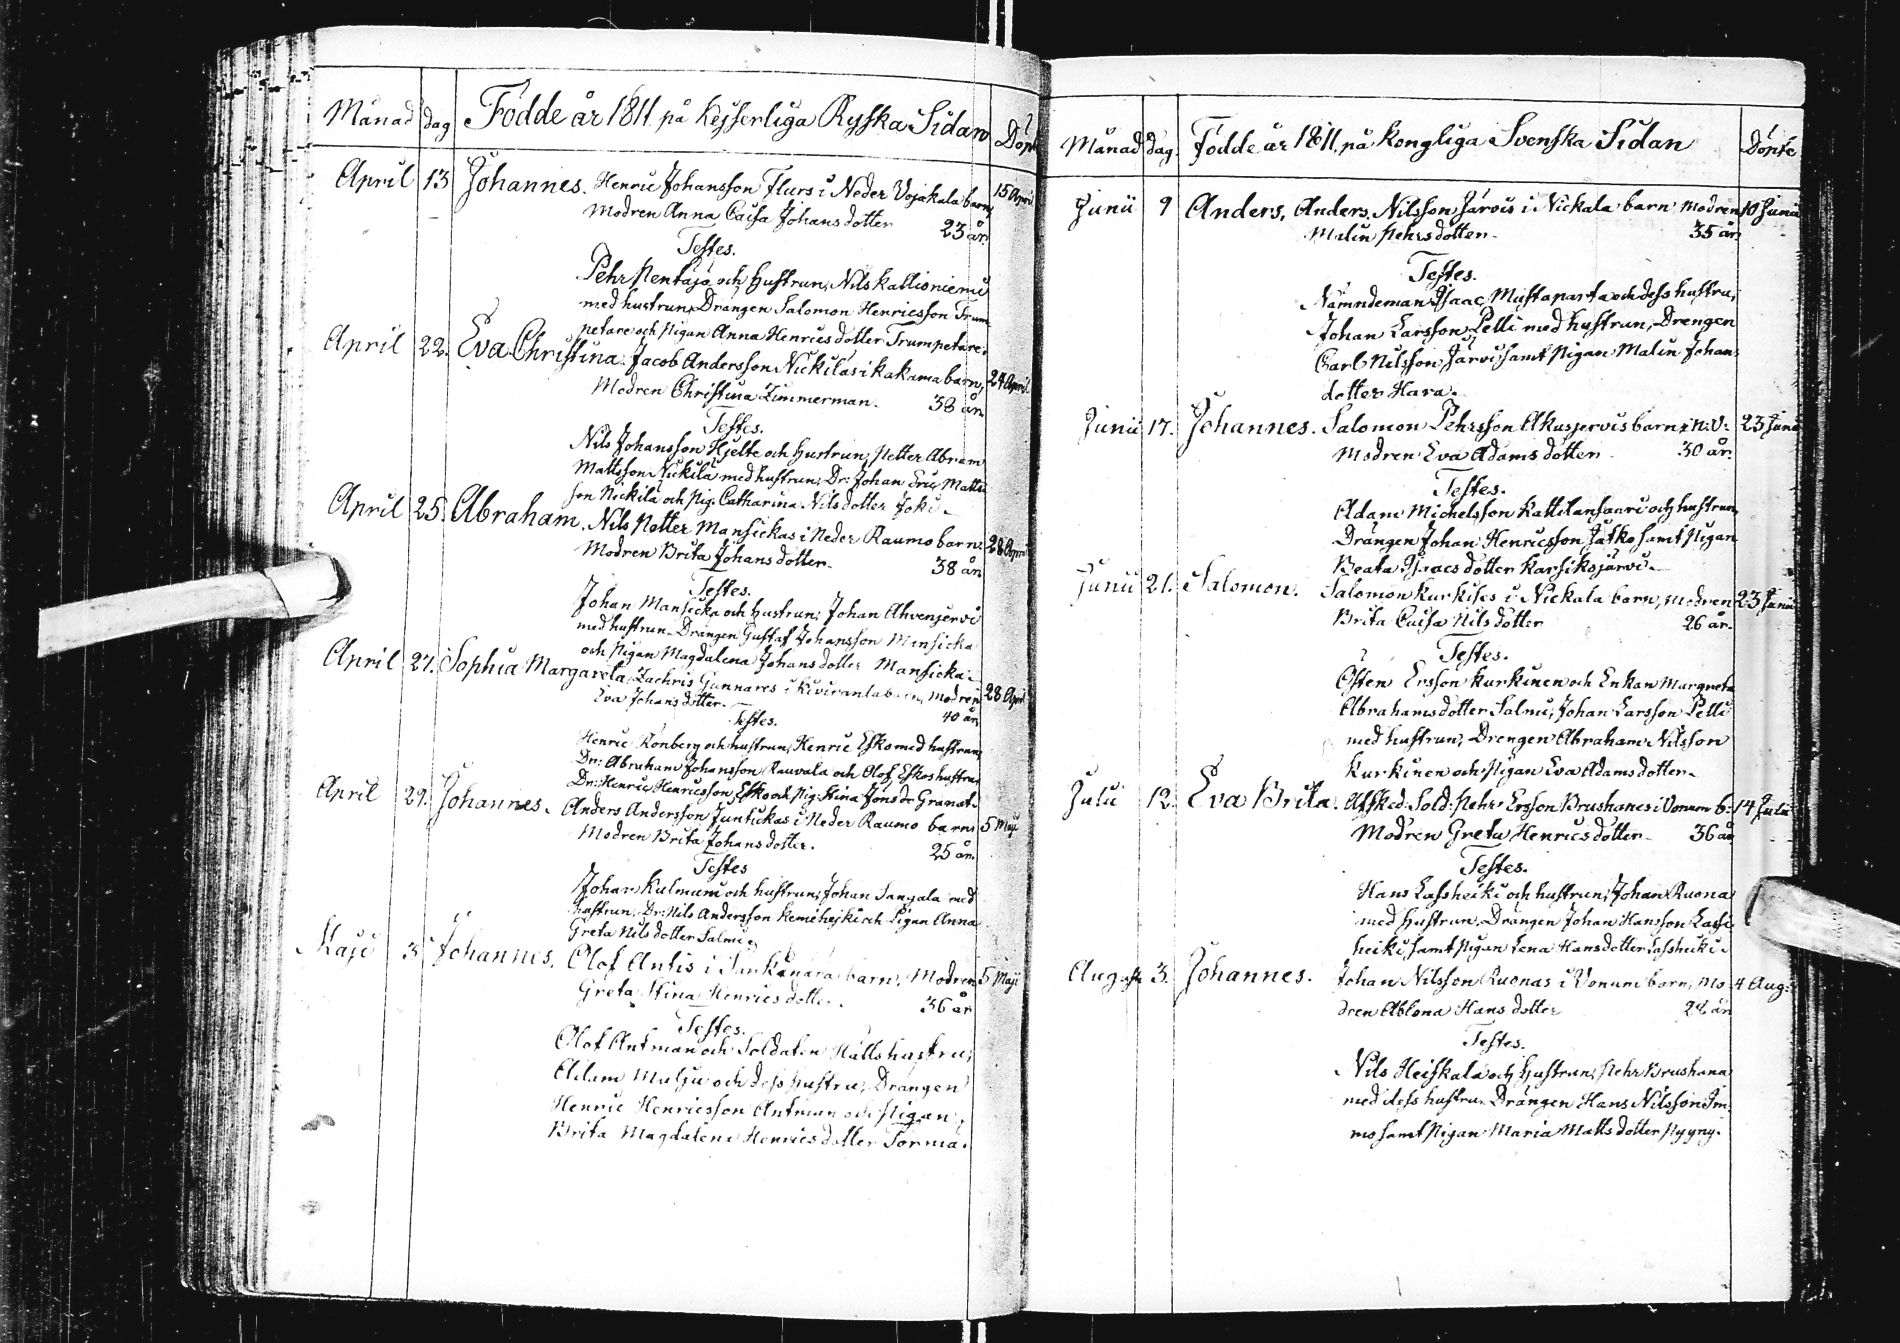 Månad dag Födde år 1811. på Kejserliga Ryska Sidan Döpt
April 13 Johannes. Henric Johansson Flurs i Neder Vojakala barn, 15 April
Modren Anna Caisa Johansdotter 23 år
Testes.
Pehr Pentäjä och Hustrun, Nils Kallioniemi
med hustrun, Drängen Salomon Henricsson Trum
petare och Pigan Anna Henricsdotter Trumpetare.
April 22. Eva Christina. Jacob Andersson Nickilas i Kakama barn, 24 April
Modren Christina Zimmerman. 38 år
Testes.
Nils Johansson Hjelte och Hustrun, Petter Abram
Mattsson Nickilä med hustrun, Dr: Johan Eric Matts
son Nickilä och Pig. Catharina Nilsdotter Joki.
April 25. Abraham. Nils Petter Mansickas i Neder Raumo barn: 28 April
Modren Brita Johansdotter. 38 år
Testes.
Johan Mansicka och Hustrun; Johan Ahvenjervi
med hustrun. Drängen Gustaf Johansson Mansicka
och Pigan Magdalena Johansdotter Mansicka.
April 27. Sophia Margareta. Zachris Gunnares i Kiviranta barn, Modren 28 April
Eva Johansdotter. 40 år
Testes.
Henric Rönberg och hustrun, Henric Esko med hustrun,
Dr: Abraham Johansson Rauvala och Olof Eskos hustru,
Dr: Henric Henricsson Esko och Pig: Stina Jönsdr Granat.
April 29. Johannes. Anders Andersson Juntickas i Neder Raumo barn: 5 Maji
Modren Brita Johansdotter. 25 år
Testes
Johan Kulmuni och hustrun, Johan Sangala med
hustrun, Dr: Nils Andersson Kemihejki och Pigan Anna
Greta Nilsdotter Salmi.
Maji 3 Johannes. Olof Antis i barn, Modren 5 Maji
Greta Stina Henricsdotter. 36 år
Testes.
Olof Antman och Soldaten Hälls hustru,
Adam Malju och dess hustru, Drängen
Henric Henricsson Antman och Pigan
Brita Magdalena Henricsdotter Torma.
Månad dag. Födde år 1811. på Kongliga Svenska Sidan Döpte
Junii 9 Anders, Anders Nilsson Järvis i Nickala barn Modren 10 Junii
Malin Pehrsdotter. 35 år
Testes.
Nämndeman Isaac Mustaparta och dess hustru,
Johan Larsson Pelli med hustrun, Drengen
Carl Nilsson Järvi samt Pigan Malin Johans
dotter Hara.
Junii 17. Johannes. Salomon Pehrsson Akusjervis barn i N: V: 23 Junii
Modren Eva Adams dotter. 30 år.
Testes.
Adam Michelsson Kattilansaari och hustrun,
Drängen Johan Henricsson Jatko samt Pigan
Beata Isaacs dotter Karsiksjärvi.
Junii 21. Salomon. Salomon Kurkises i Nickala barn, Modren 23 Junii
Brita Caisa Nils dotter 26 år.
Testes.
Östen Ersson Kurkinen och Enkan Margreta
Abrahamsdotter Salmi, Johan Larsson Pelli
med hustrun, Drengen Abraham Nilsson
Kurkinen och Pigan Eva Adamsdotter.
Julii 12. Eva Brita. Afsked: Sold: Pehr Ersson Brushanes i Vonum b: 14 Julii
Modren Greta Henricsdotter. 36 år
Testes.
Hans Lassheiki och hustrun, Johan Ruona
med hustrun. Drängen Johan Hansson Lass
heiki samt Pigan Lena Hansdotter Lassheiki.
Augusti 3. Johannes. Johan Nilsson Ruonas i Vonum barn, Mo 4 Aug:
dren Ablona Hans dotter 28 år
Testes.
Nils Heiskala och Hustrun, Pehr Brushana
med dess hustru. Drängen Hans Nilsson Im
mo samt Pigan Maria Matts dotter Pyyny.